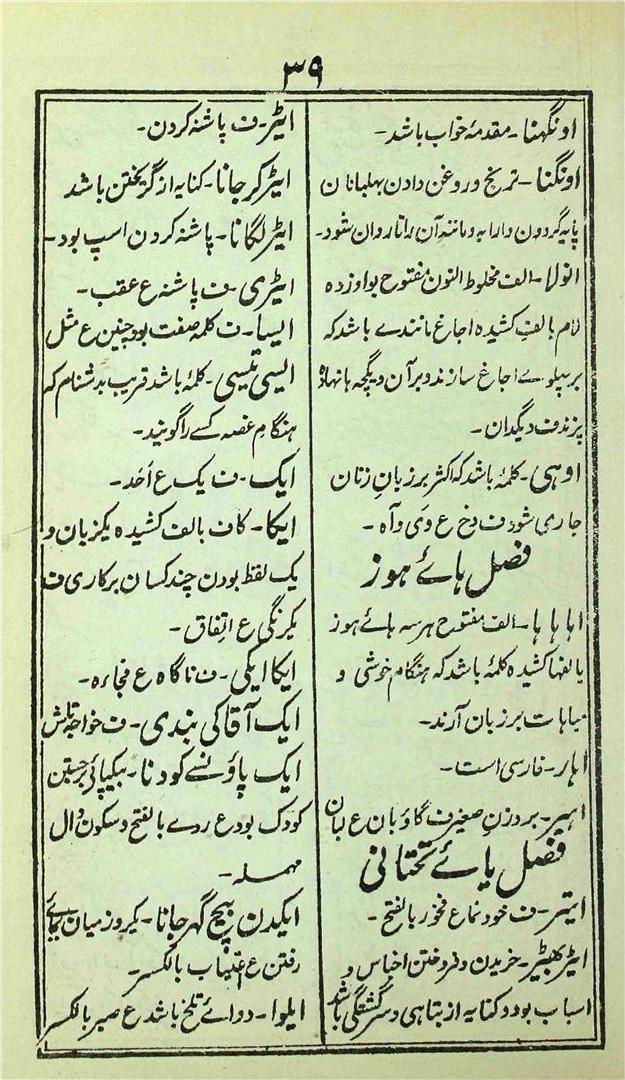 ۳۹
اونگھنا۔ مقدمۂ خواب باشد۔
اونگنا۔ تریخ و روغن دادن بہلبانان
پایہ گردون دارابہ و مانند آن را تا روان شود۔
انولا۔ الف مخلوط النون مفتوح بواو زدہ
لام بالف کشیدہ اجاغ مانندے باشد کہ
بر پہلوے اجاغ سازند و بر آن دیگچہ ہا نہادہ
پزند ف دیگدان۔
اوہی۔ کلمۂ باشد کہ اکثر بر زبان زنان
جاری شود ف دخ ع وَی و آہ۔
فصل ہائے ہوز
اہا ہا ہا۔ الف مفتوح ہر سہ ہائے ہوز
بالفہا کشیدہ کلمۂ باشد کہ ہنگام خوشی و
مباہات بر زبان آرند۔
اہار۔ فارسی است۔
اہیر۔ بر وزن صغیر ف گاوبان ع لبان
فصل یائے تحتانی
ایتر۔ ف خودنما ع فخور بالفتح۔
ایٹر بھیٹر۔ خریدن و فروختن اجناس و
اسباب بود و کنایہ از تباہی و سرگشتگی باشد
ایڑ۔ ف پاشنہ کردن۔
ایڑ کر جانا۔ کنایہ از گریختن باشد
ایڑ لگانا۔ پاشنہ کردن اسپ بود۔
ایڑی۔ ف پاشنہ ع عقب۔
ایسا۔ ف کلمہ صفت بود چنین ع مثل
ایسی تیسی۔ کلمۂ باشد قریب بدشنام کہ
ہنگام غصہ کسے را گویند۔
ایک۔ ف یک ع اَحَد۔
ایکا۔ کاف بالف کشیدہ یکزبان و
یک لفظ بودن چند کسان برکاری ف
یکرنگی ع اتفاق۔
ایکا ایکی۔ ف ناگاہ ع فجاءہ۔
ایک آقا کی بندی۔ ف خواجہ تاش
ایک پاؤں سے کودنا۔ بیکپائی برجستن
کودک بود ع ردے بالفتح و سکون دال
مہملہ۔
ایکدن بیچ گھر جانا۔ یکروز میان
رفتن ع بالکسر۔
ایلوا۔ دوائے تلخ باشد ع صبر بالکسر